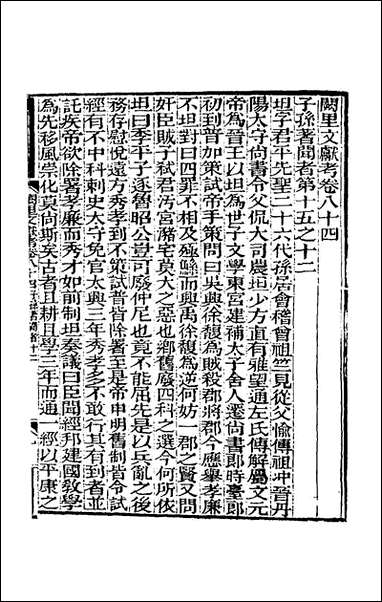 闕里文獻考卷八十四
子孫著聞者第十五之十二
坦字君平先聖二十六代孫居會稽曾祖竺見從父愉傳祖冲晉丹
陽太守尚書令父侃大司農坦少方直有雅望通左氏傳解屬文元
帝為晉王以坦為世子文學東宮建補太子舍人遷尚書郎時臺郎
初到普加策試帝手策問曰吳興徐馥為賊殺郡將郡今應舉孝廉
不坦對曰四罪不相及殛鯀而興禹徐馥為逆何妨一郡之賢又問
奸臣賊子弒君汚宮瀦宅莫大之惡也鄉舊廢四科之選今何所依
坦曰季平子逐魯昭公豈可廢仲尼也竟不能屈先是以兵亂之後
務存慰悅遠方秀孝到不策試普皆除署至是帝申明舊制皆令試
經有不中科刺史太守免官太興三年秀孝多不敢行其有到者並
託疾帝欲除署孝廉而秀才如前制坦奏議曰臣聞經邦建國敎學
為先移風崇化莫尚斯矣古者且耕且學三年而通一經以平康之
闕里文獻考卷八十四